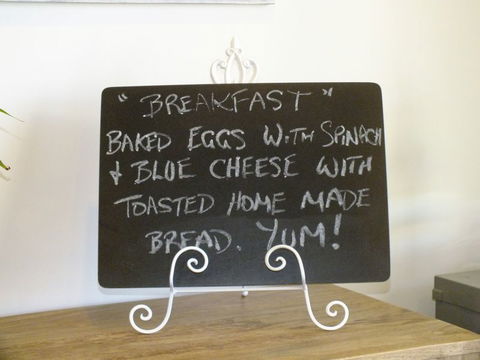 "BREAKFAST"
BAKED EGGS WITH SPINACH
& BLUE CHEESE WITH
TOASTED HOME MADE
BREAD. YUM!